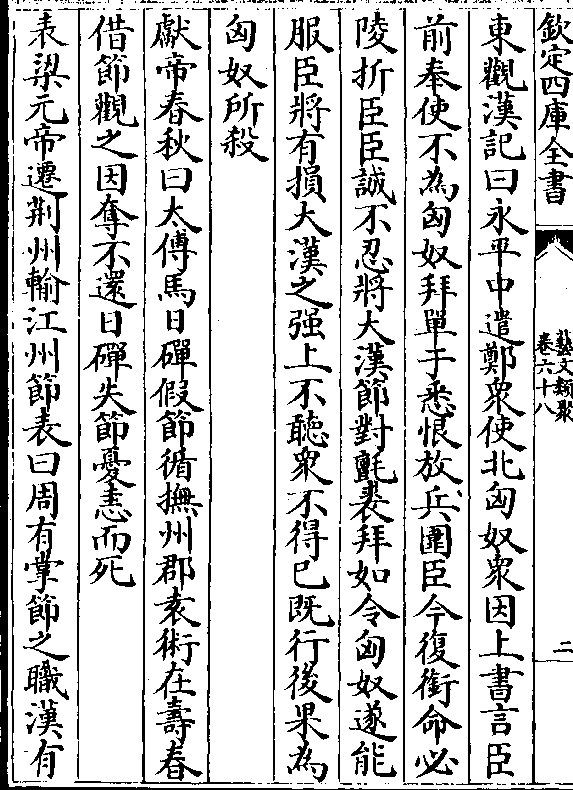 欽定四庫全書
藝文類聚
卷六十八
二
東觀漢記曰永平中遣鄭衆使北匈奴衆因上書言臣
前奉使不為匈奴拜單于恚恨放兵圍臣今復銜命必
陵折臣臣誠不忍將大漢節對氊裘拜如令匈奴遂能
服臣將有損大漢之强上不聽衆不得已既行後果為
匈奴所殺
獻帝春秋曰太傅馬日磾假節循撫州郡袁術在壽春
借節觀之因奪不還日磾失節憂恚而死
表梁元帝遷荆州輸江州節表曰周有掌節之職漢有